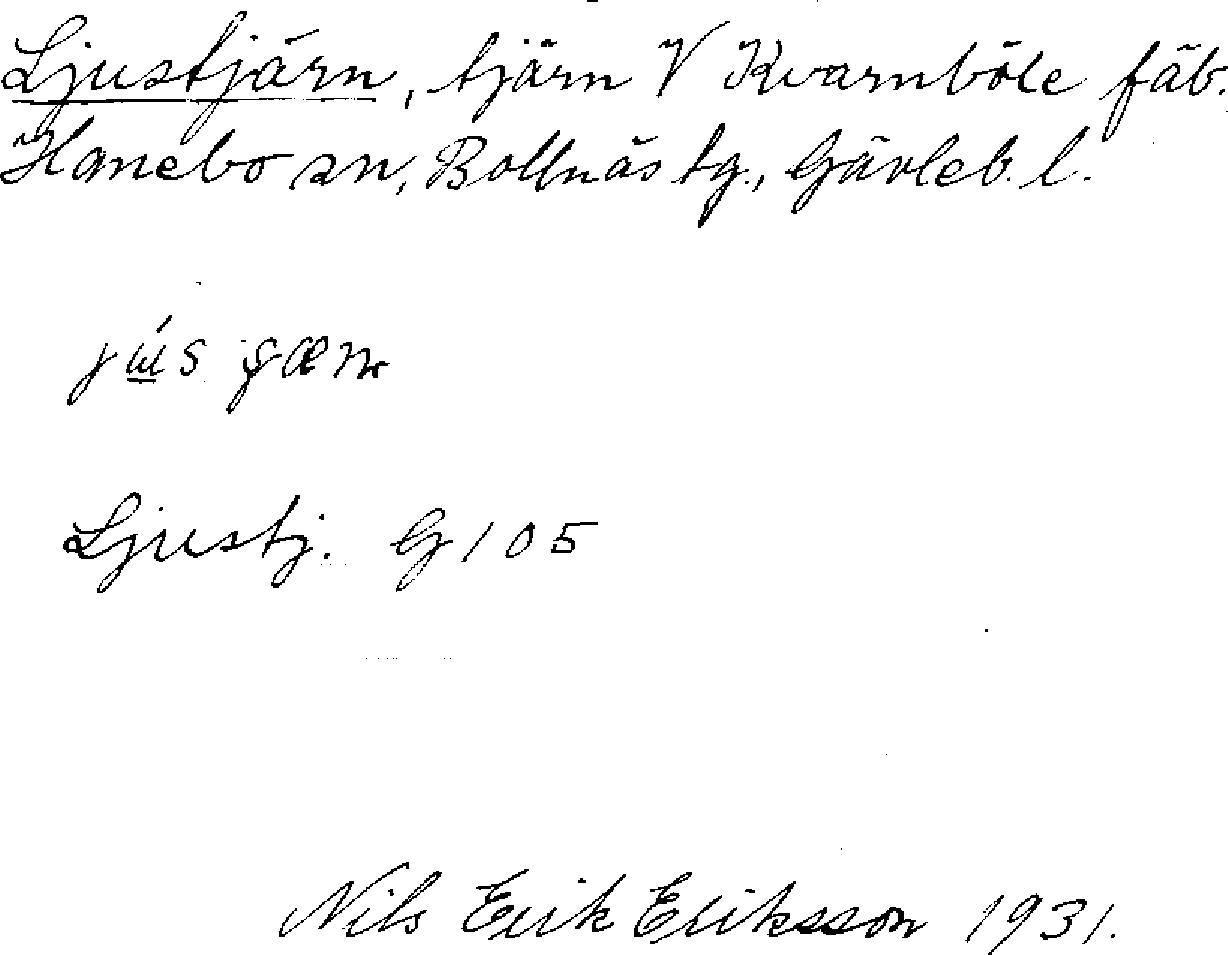 Ljustjärn, tjärn V Kvarnböle fäb.
Hanebo sn, Bollnäs tg., Gävleb. l.
Ljustj. G 105
Nils Erik Eriksson 1931.